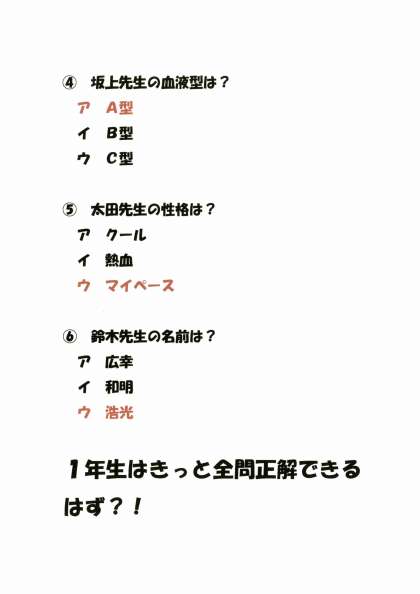 ④　坂上先生の血液型は？
ア　Ａ型
イ　Ｂ型
ウ　Ｃ型
⑤　太田先生の性格は？
ア　クール
イ　熱血
ウ　マイペース
⑥　鈴木先生の名前は？
ア　広幸
イ　和明
ウ　浩光
１年生はきっと全問正解できる
はず？！